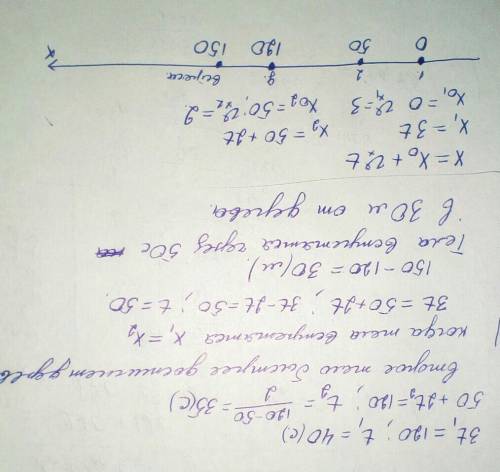 3t₁=120; t₁=40(с)
50+2t₂=120; t₂=120-50/2=35(с)
Второе тело быстрее достигнет дерев
когда тела встретятся x₁=x₂
3t=50+2t; 3t-2t=50; t=50.
150-120=30(м)
Тела встретятся через 50с
в 30 м от дерева.
x=x₀+υₓt
x₁=3t x₂=50+2t
x₀₁=0 υ₁ₓ=3 x₀₂=50; υ₂ₓ=2.
1. 2 д. встреча
0 50 120 150 x